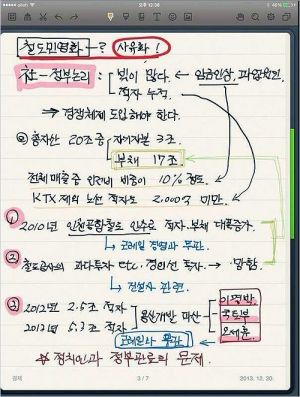 철도민영화 → ? 사유화!
빚이 많다. ← 임금인상, 파업원인
적자 누적
→ 경쟁체제 도입해야 한다.
총자산 20조 중 자기자본 3조
부채 17조
전체 매출 중 인건비 비중이 10% 정도
KTX 제외 노선 적자도 2,000억 미만
① 2010년 인천공항철도 인수로 적자·부채 대폭증가
↳ 코레일 경영과 무관
② 철도공사의 과다투자 etc. 경인선 투자. → 망함
↳ 건설사 관련
③ 2012년 2.5조 적자
2013년 5.3조 적자
용산개발 파산
이명박
국토부
오세훈
↳ 코레일과 무관
정치인과 정부관료의 문제.
3 / 7
2013. 12. 20.